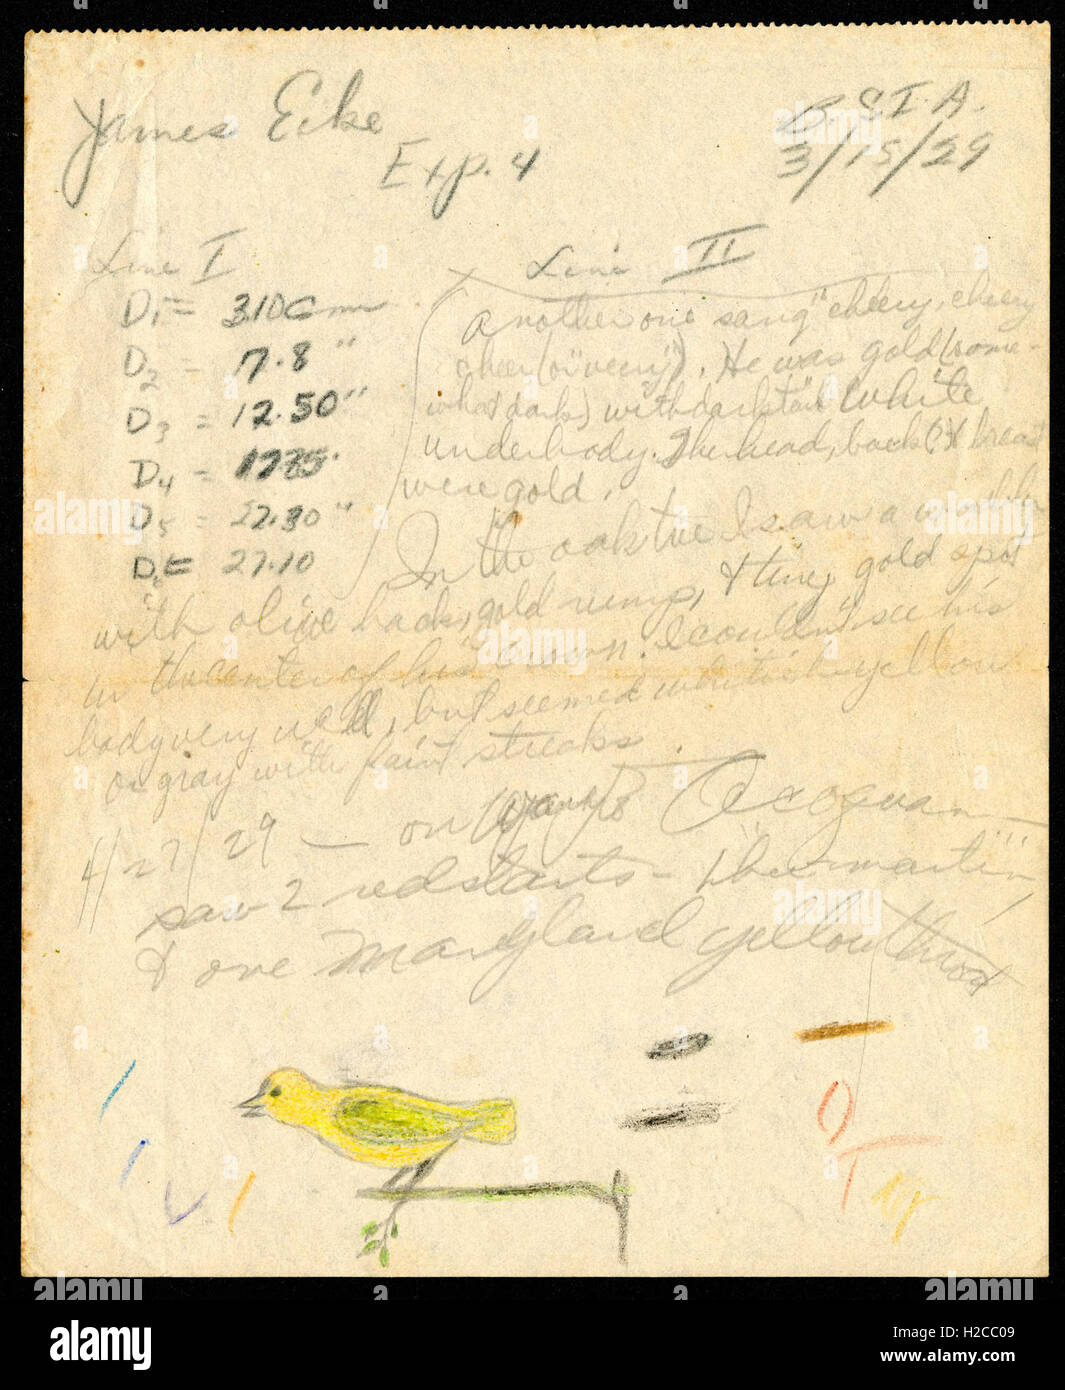 James Eike
B.S.I.A.
Exp. 4
3/15/29
Line I
Line II
D1 = 3.10 cm
D2 = 7.8 "
D3 = 12.50 "
D4 =
D5 = 22.30 "
D6 = 27.10
(Another one sang "cheery, cheery
cheer (or "very"). He was gold (some-
what dark) with dark tail white
underbody. The head, back(?) & breast
were gold.
In the oak tree I saw a
with olive back, gold rump, & tiny gold spot
in the center of his crown. I couldn't see his
body very well, but seemed whitish yellow
or gray with faint streaks.
4/27/29 — on
saw 2 redstarts — 1 her martin,
& one Maryland yellowthroat
alamy
a
Image ID: H2CC09
www.alamy.com